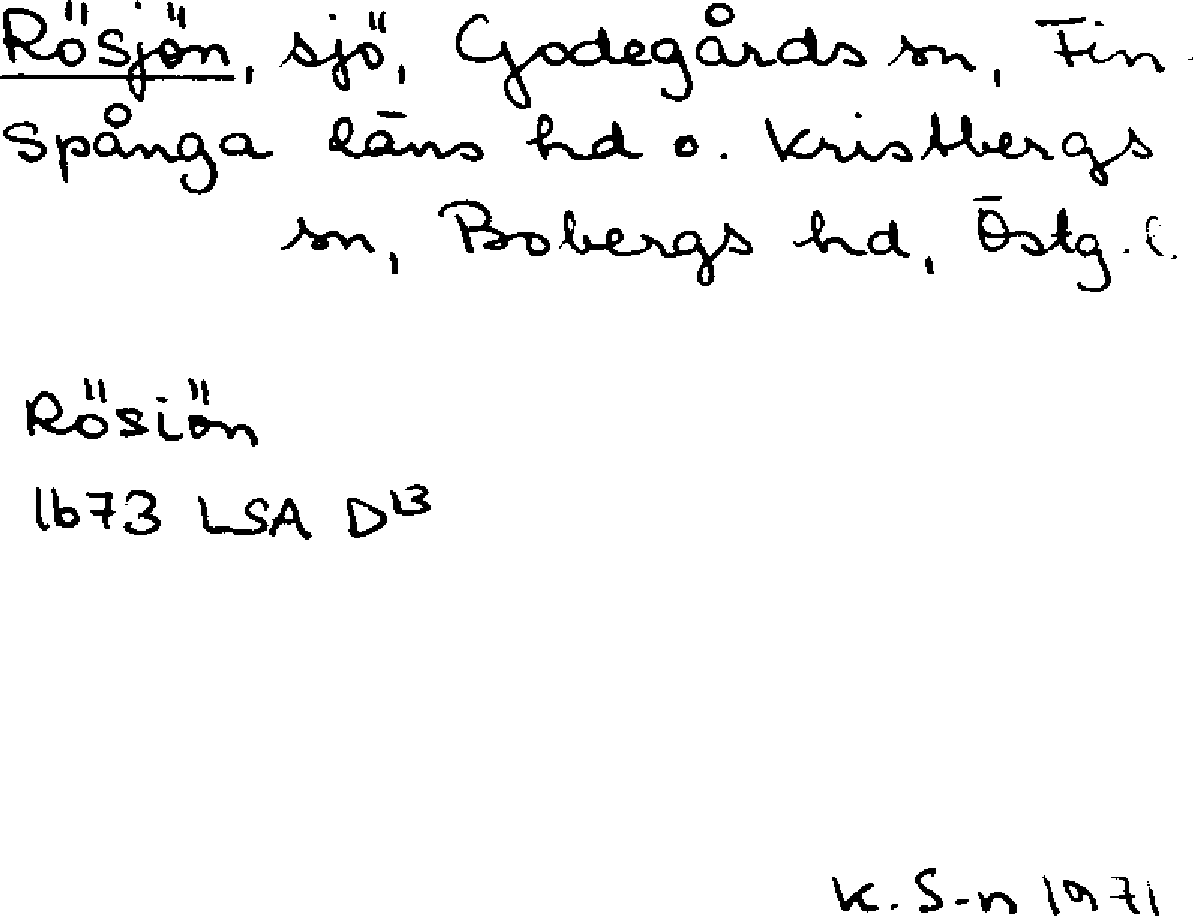 Rösjön, sjö, Godegårds sn, Fin-
spånga läns hd o. Kristbergs
sn, Bobergs hd, Östg. l.
Rösiön
1673 LSA D13
K. S-n 1971